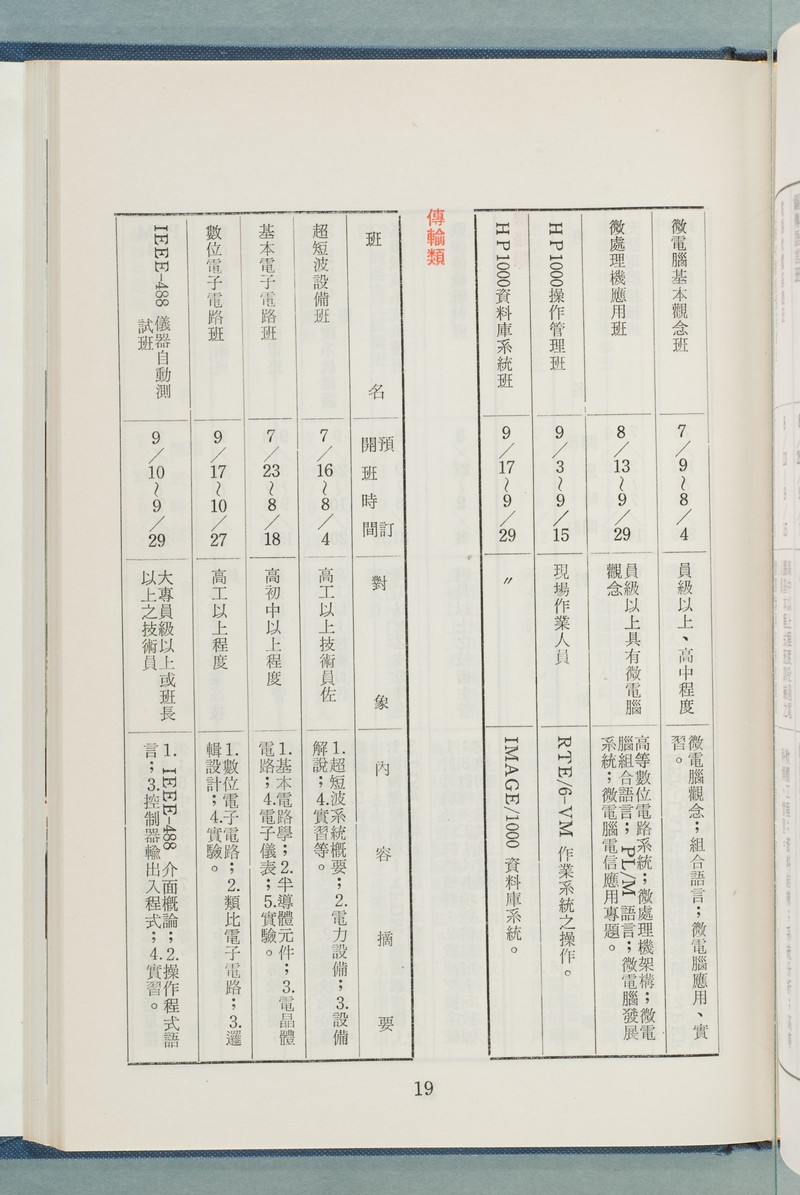 微電腦基本觀念班
7/9~8/4
員級以上、高中程度
微電腦觀念；組合語言；微電腦應用、實
習。
微處理機應用班
8/13~9/29
員級以上具有微電腦
觀念
高等數位電路系統；微處理機架構；微電
腦組合語言；PL/M 語言；微電腦發展
系統；微電腦電信應用專題。
HP1000操作管理班
9/3~9/15
現場作業人員
RTE/6-VM 作業系統之操作。
HP1000資料庫系統班
9/17~9/29
〃
IMAGE/1000 資料庫系統。
傳輸類
班名
預訂
開班時間
對象
內容摘要
超短波設備班
7/16~8/4
高工以上技術員佐
1.超短波系統概要；2.電力設備；3.設備
解說；4.實習等。
基本電子電路班
7/23~8/18
高初中以上程度
1.基本電路學；2.半導體元件；3.電晶體
電路；4.電子儀表；5.實驗。
數位電子電路班
9/17~10/27
高工以上程度
1.數位電子電路；2.類比電子電路；3.邏
輯設計；4.實驗。
IEEE-488 儀器自動測
試班
9/10~9/29
大專員級以上或班長
以上之技術員
1. IEEE-488 介面概論；2.操作程式語
言；3.控制器輸出入程式；4.實習。
19